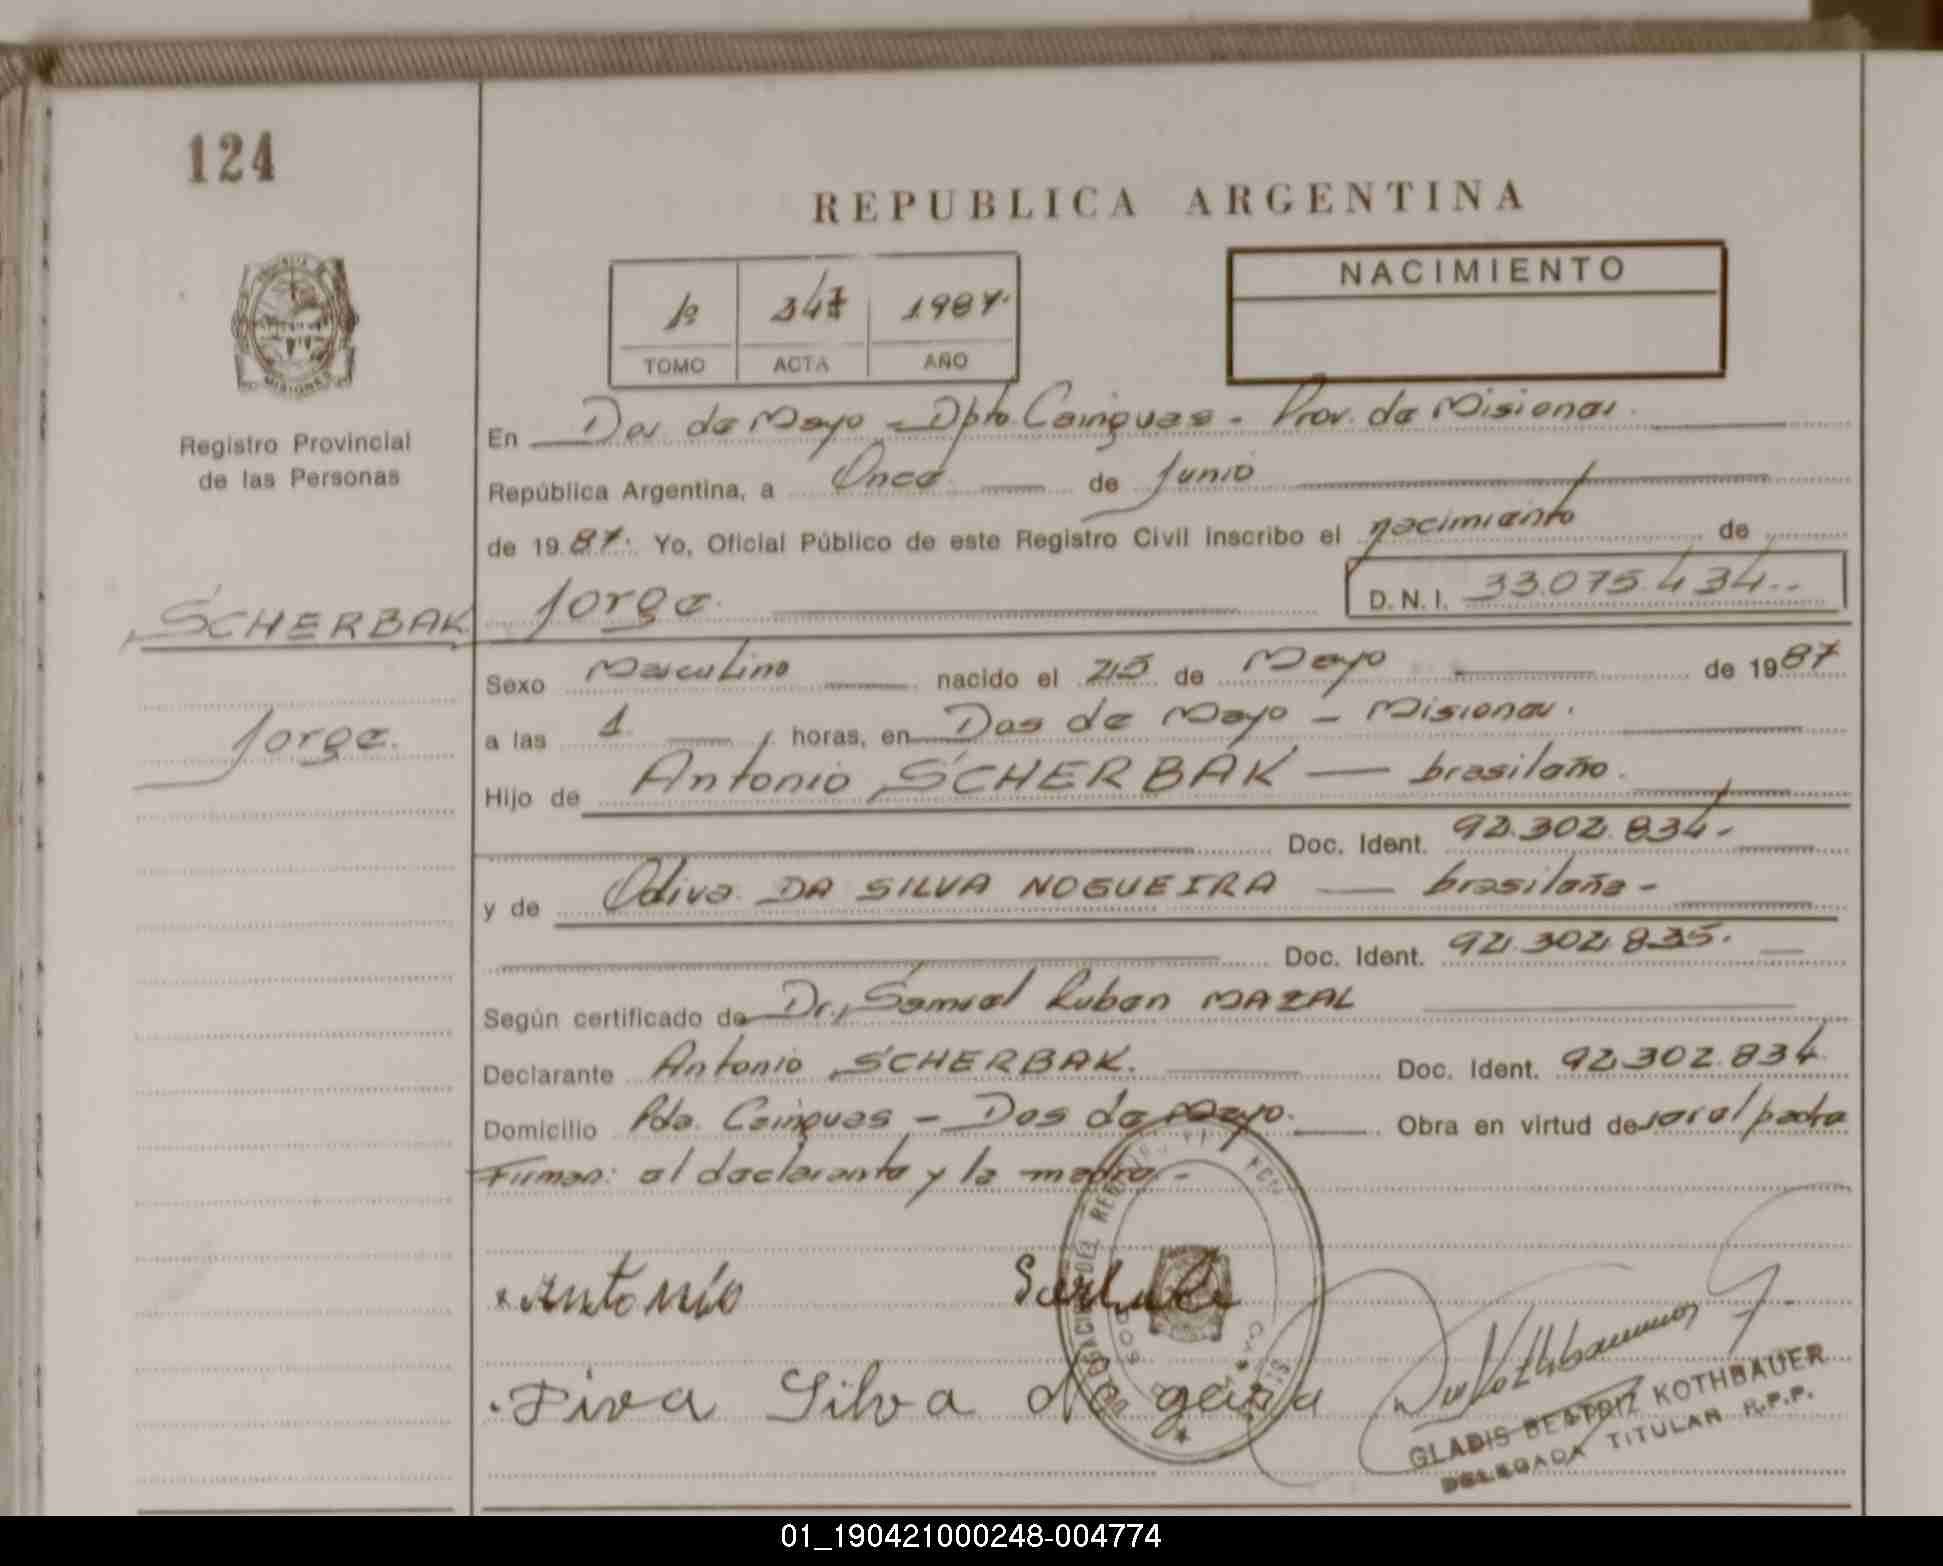 124
REPUBLICA ARGENTINA
NACIMIENTO
1º 347 1987.
TOMO ACTA AÑO
Registro Provincial
de las Personas
En Dos de Mayo - Dpto. Cainguas - Prov. de Misiones.
República Argentina, a Once de Junio
de 1987. Yo, Oficial Público de este Registro Civil inscribo el nacimiento de
SCHERBAK Jorge. D.N.I. 33.075.434.-
Sexo Masculino nacido el 25 de Mayo de 1987
Jorge.
a las 1 horas, en Dos de Mayo - Misiones.
Hijo de Antonio SCHERBAK — brasileño.
Doc. Ident. 92.302.834.-
y de Odiva DA SILVA NOGUEIRA — brasileña -
Doc. Ident. 92.302.835.
Según certificado de Dr. Samuel Ruben MAZAL
Declarante Antonio SCHERBAK. Doc. Ident. 92.302.834
Domicilio Pda. Cainguas - Dos de Mayo. Obra en virtud de ser el padre
Firman: el declarante y la madre.-
Antonio
Diva Silva
GLADIS BEATRIZ KOTHBAUER
DELEGADA TITULAR R.P.P.
01_190421000248-004774